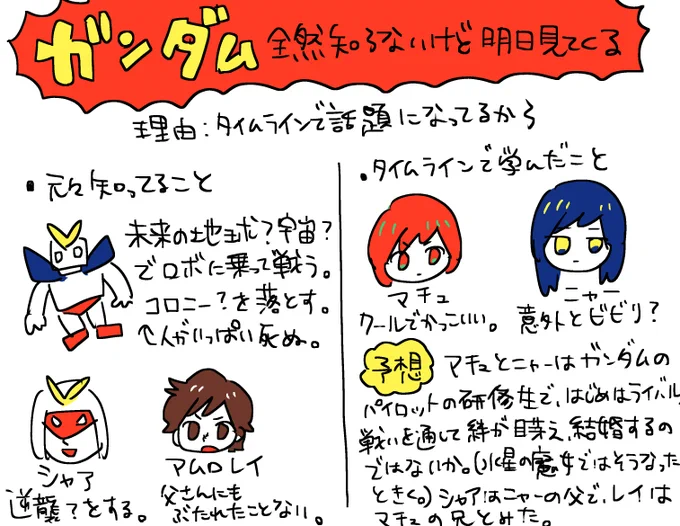 ガンダム全然知らないけど明日見てくる
理由:タイムラインで話題になってるから
・元々知ってること
未来の地球?宇宙?
でロボに乗って戦う。
コロニー?を落とす。
↑人がいっぱい死ぬ。
シャア
逆襲?をする。
アムロレイ
父さんにも
ぶたれたことない。
・タイムラインで学んだこと
マチュ
クールでかっこいい。
ニャー
意外とビビリ?
予想 マチュとニャーはガンダムの
パイロットの研修生で、はじめはライバル、
戦いを通して絆が芽え、結婚するの
ではないか。(水星の魔女ではそうなった
ときく。)シャアはニャーの父で、レイは
マチュの兄とみた。